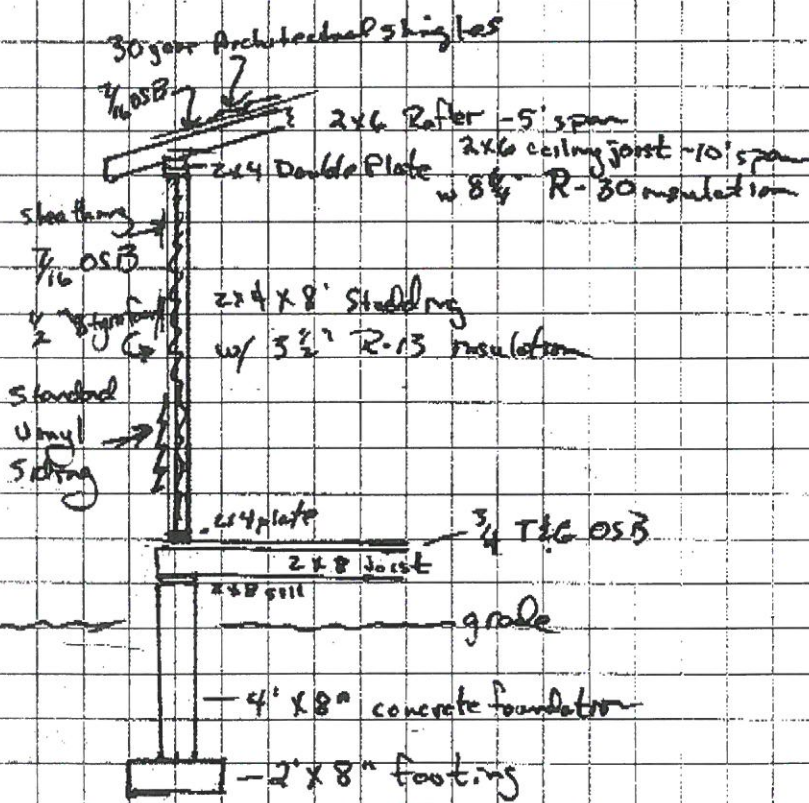 30 year Architectural Shingles
7/16 OSB
2x6 Rafter - 5' span
2x6 ceiling joist - 10' span
2x4 Double Plate
w 8 1/4" R-30 insulation
sheathing
7/16 OSB
1/2 "Styrofoam
2x4x8' Studding
w/ 3 1/2" R-13 insulation
Standard
Vinyl
Siding
2x4 plate
3/4 T&G OSB
2x8 Joist
2x8 sill
grade
4' x 8" concrete foundation
2' x 8" footing